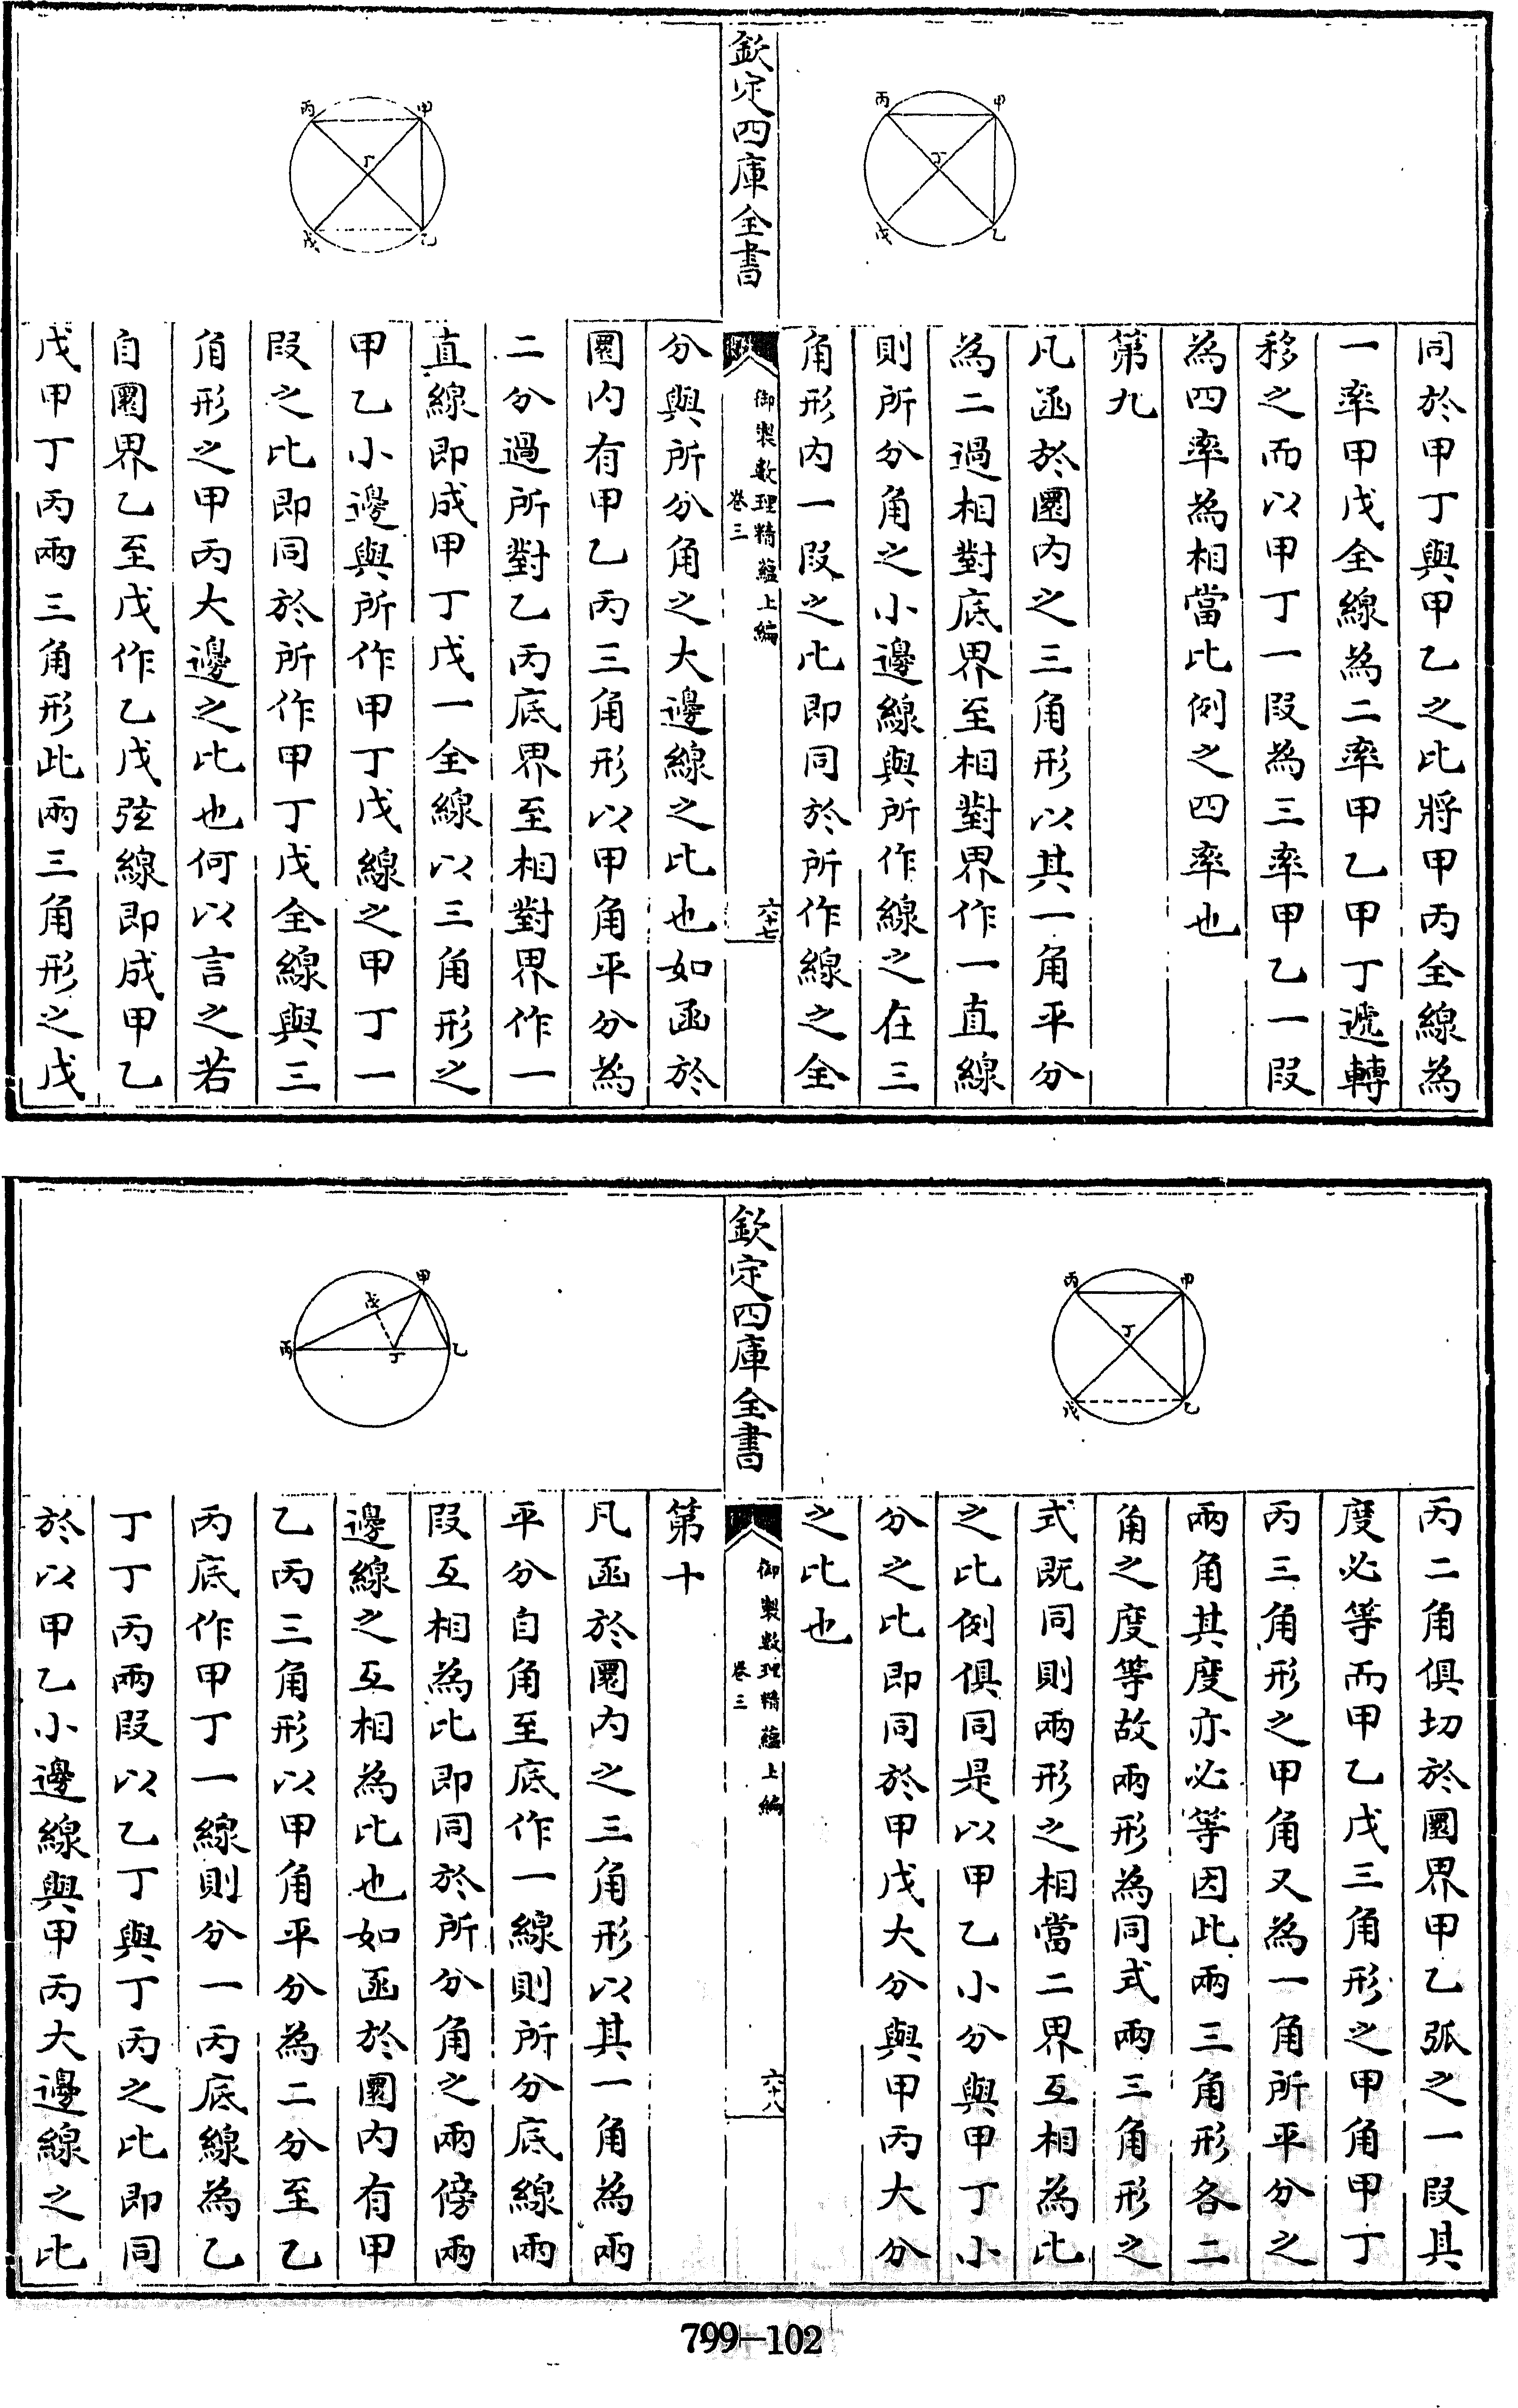 丙
甲
丁
戊
乙
同於甲丁與甲乙之比將甲丙全線為
一率甲戊全線為二率甲乙甲丁遞轉
移之而以甲丁一段為三率甲乙一段
為四率為相當比例之四率也
第九
凡函於圜内之三角形以其一角平分
為二過相對底界至相對界作一直線
則所分角之小邊線與所作線之在三
角形内一段之比即同於所作線之全
欽定四庫全書
御製數理精蘊上編
卷三
六十七
丙
甲
丁
戊
乙
分與所分角之大邊線之比也如函於
圜内有甲乙丙三角形以甲角平分為
二分過所對乙丙底界至相對界作一
直線即成甲丁戊一全線以三角形之
甲乙小邊與所作甲丁戊線之甲丁一
段之比即同於所作甲丁戊全線與三
角形之甲丙大邊之比也何以言之若
自圜界乙至戊作乙戊弦線即成甲乙
戊甲丁丙兩三角形此兩三角形之戊
丙
甲
丁
戊
乙
丙二角俱切於圜界甲乙弧之一段其
度必等而甲乙戊三角形之甲角甲丁
丙三角形之甲角又為一角所平分之
兩角其度亦必等因此兩三角形各二
角之度等故兩形為同式兩三角形之
式既同則兩形之相當二界互相為比
之比例俱同是以甲乙小分與甲丁小
分之比即同於甲戊大分與甲丙大分
之比也
欽定四庫全書
御製數理精蘊上編
卷三
六十八
甲
戊
丙
丁
乙
第十
凡函於圜内之三角形以其一角為兩
平分自角至底作一線則所分底線兩
段互相為比即同於所分角之兩傍兩
邊線之互相為比也如函於圜内有甲
乙丙三角形以甲角平分為二分至乙
丙底作甲丁一線則分一丙底線為乙
丁丁丙兩段以乙丁與丁丙之比即同
於以甲乙小邊線與甲丙大邊線之比
799-102